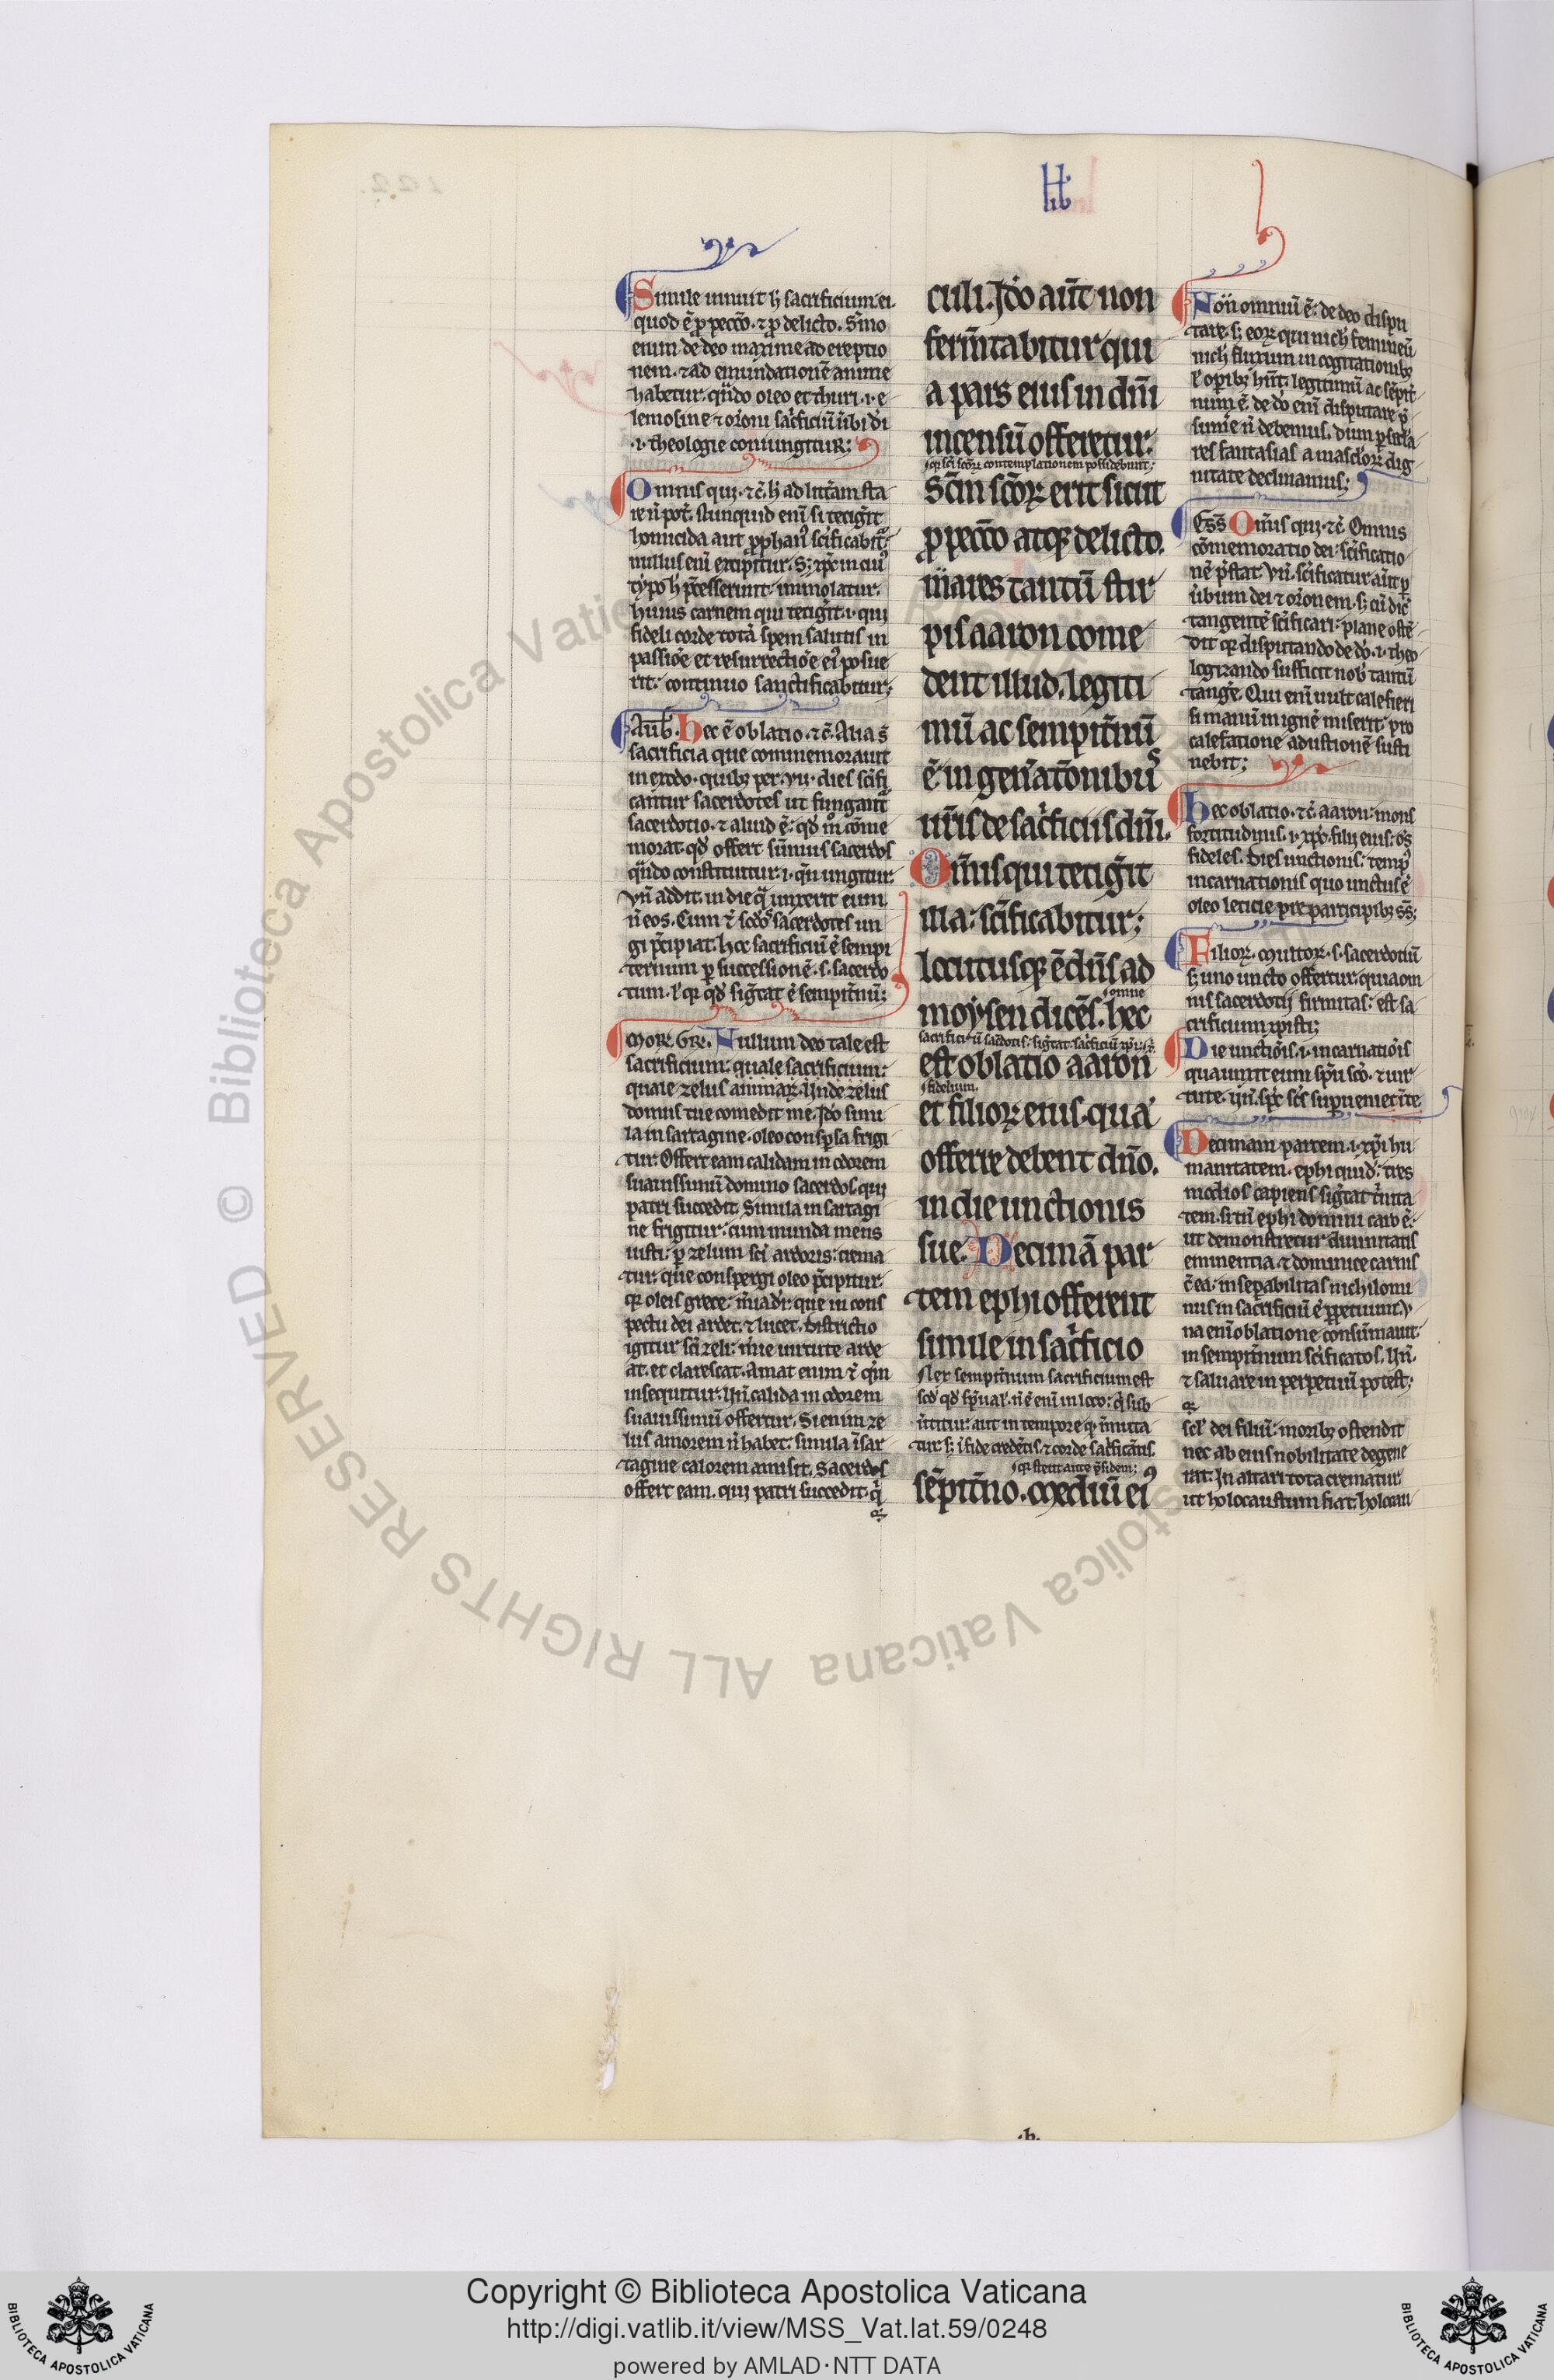 lib'
Simile innuit h̄ sacrificium ei.
quod ē p̱ pecc̄o. ⁊ p̱ delicto. S̄mo
enim de deo maxime ad ereptio
nem. ⁊ ad emundationē anime
habetur. qn̄do oleo et thuri .i. e
lemosine ⁊ or̄oni sac̄ficiū u̇bi di
.i. theologie coniungitur;
Omnis qui. ⁊c̄. h̄ ad litt̄am sta
re n̄ pot̄. Nunquid eni si tetiḡit
homicida aut p̱phan' sc̄ificabit̄.
nullus eni excipitur. S; xp̄c in cui'
typo h̄ p̄cesserunt. immolatur.
huius carnem qui tetiḡit .i. qui
fideli corde totā spem salutis in
passiōe et resurrectiōe ei' posue
rit: continuo sanctificabitur;
Aūḡ. Hec ē oblatio. ⁊c̄. Alia s̄
sacrificia que commemorauit
in exodo. quibꝫ per .vii. dies sc̄ifi
cantur sacerdotes ut fungant̄
sacerdotio. ⁊ aliud ē: qd̄ m̊ cōme
morat. qd̄ offert sūmus sacerdos
qn̄do constituitur .i. qn̄ ungitur.
Vn̄ addit. in die q̄ unxerit eum
n̄ eos. Cum ⁊ sc̄dos sacerdotes un
gi p̄cipiat. Hoc sacrificiū ē sempi
ternum p̱ successionē .s. sacerdo
tum. ł qꝫ qd̄ sig̃tat ē sempit̄nū;
MOR. GR. Nullum deo tale est
sacrificium: quale sacrificium:
quale zelus animaꝝ. Vnde zelus
domus tue comedit me. Ido simi
la in sartagine. oleo consp̱sa frigi
tur. Offert eam calidam in odorem
suauissimū domino sacerdos qui
patri succedit. Simila in sartagi
ne frigitur. cum munda mens
iusti. p̱ zelum sc̄i ardoris: crema
tur. que conspergi oleo p̄cipitur.
pectu dei ardet. ⁊ lucet. Districtio
igitur sc̄i zeli: m̄ie uirtute arde
at. et clarescat. Amat enim ⁊ qm̄
insequitur. Vn̄ calida in odorem
suauissimū offertur. Si enim ze
lus amorem n̄ habet: simila ī sar
tagine calorem amisit. Sacerdos
offert eam. qui patri succedit. q̄
culi. Id̊o aut̄ non
ferm̄tabitur. qui
a pars eius in dn̄i
incensū offeretur.
qꝫ soli sc̄oꝝ contemplationem possidebunt;
Sc̄m sc̄oꝝ erit sicut
p̱ pecc̄o atqꝫ delicto.
mares tantū stir
pis aaron come
dent illud. legiti
mū ac sempit̄nū
ē in gen̄at̄onibus
uris de sac̄ficiis dn̄i.
Om̄is qui tetiḡit
illa: sc̄ificabitur;
locutusqꝫ ē dn̄s ad
moysen dicēs. hec
est oblatio aaron
fidelium.
et filioꝝ eius. quā
offerre debent dn̄o.
in die unctionis
sue. Decimā par
tem ephi offerent
simile in sac̄ficio
Lex sempit̄num sacrificium est
ut̄itur: aut in tempore qꝫ m̄mutta
tur. s; ī fide credētis. ⁊ corde sac̄ficātis.
qꝫ stent ante p̄sidem;
sēpit̄no. Mediū ei'
Non omniū ē: de deo dispu
tare. s; eoꝝ qui nich̄ femineū
nich̄ fluxum in cogitationibꝫ
ł op̱ibꝫ hn̄t. legitimū ac sēpit̄
num ē. de do eni disputare p̄
sumēe n̄ debemus. dum p̱ sc̄la
res fantasias a masc̄loꝝ dig
nitate declinamus;
ESS̄. Om̄is qui. ⁊c̄. Omnis
cōmemoratio dei: sc̄ificatio
nē p̄stat. Vn̄. sc̄ificatur aut̄ p̱
u̇bum dei ⁊ or̄onem. s; cū dic̄
tangentē sc̄ificari: plane ostē
dit qꝫ disputando de do .i. theo
logizando sufficit nob̄ tantū
tanḡe. Qui eni uult calefieri
si manū in ignē miserit. pro
calefatione adustionē susti
nebit;
Hec oblatio. ⁊c̄. aaron: mons
fortitudinis .i. xp̄c. filii eius: om̄s
fideles. Dies unctionis: temp'
incarnationis quo unctus ē
oleo leticie pre participibꝫ s̄s;
Filioꝝ. multoꝝ .s. sacerdotiū
s; uno uncto offertur. quia om
nis sacerdotii firmitas: est sa
crificium xp̄isti;
Die unctiōis .i. incarnatiōis
qua unxit eum sp̄u sc̄o. ⁊ uir
tute. Vn̄. sp̄c sc̄s sup̱ueniet ī te
Decimam partem .i. xp̄i hu
manitatem. ephi quid: tres
modios capiens sig̃tat t̄nita
tem. si tn̄ ephi domini caro ē.
ut demonstretur diuinitatis
eminentia. ⁊ dominice carnis
c̄ ea. insep̱abilitas nichilomi
nus in sacrificiū ē p̱petuum. V
na eni oblatione consūmauit
in sempit̄num sc̄ificatos. Vn̄.
⁊ saluare in perpetuū potest.
scł' dei filiū: moribꝫ ostendit
nec ab eius nobilitate degene
rat. In altari tota crematur
ut holocaustum fiat. holocau
.h.
© Biblioteca Apostolica Vaticana ALL RIGHTS RESERVED
Copyright © Biblioteca Apostolica Vaticana
http://digi.vatlib.it/view/MSS_Vat.lat.59/0248
powered by AMLAD·NTT DATA
BIBLIOTECA APOSTOLICA VATICANA
BIBLIOTECA APOSTOLICA VATICANA